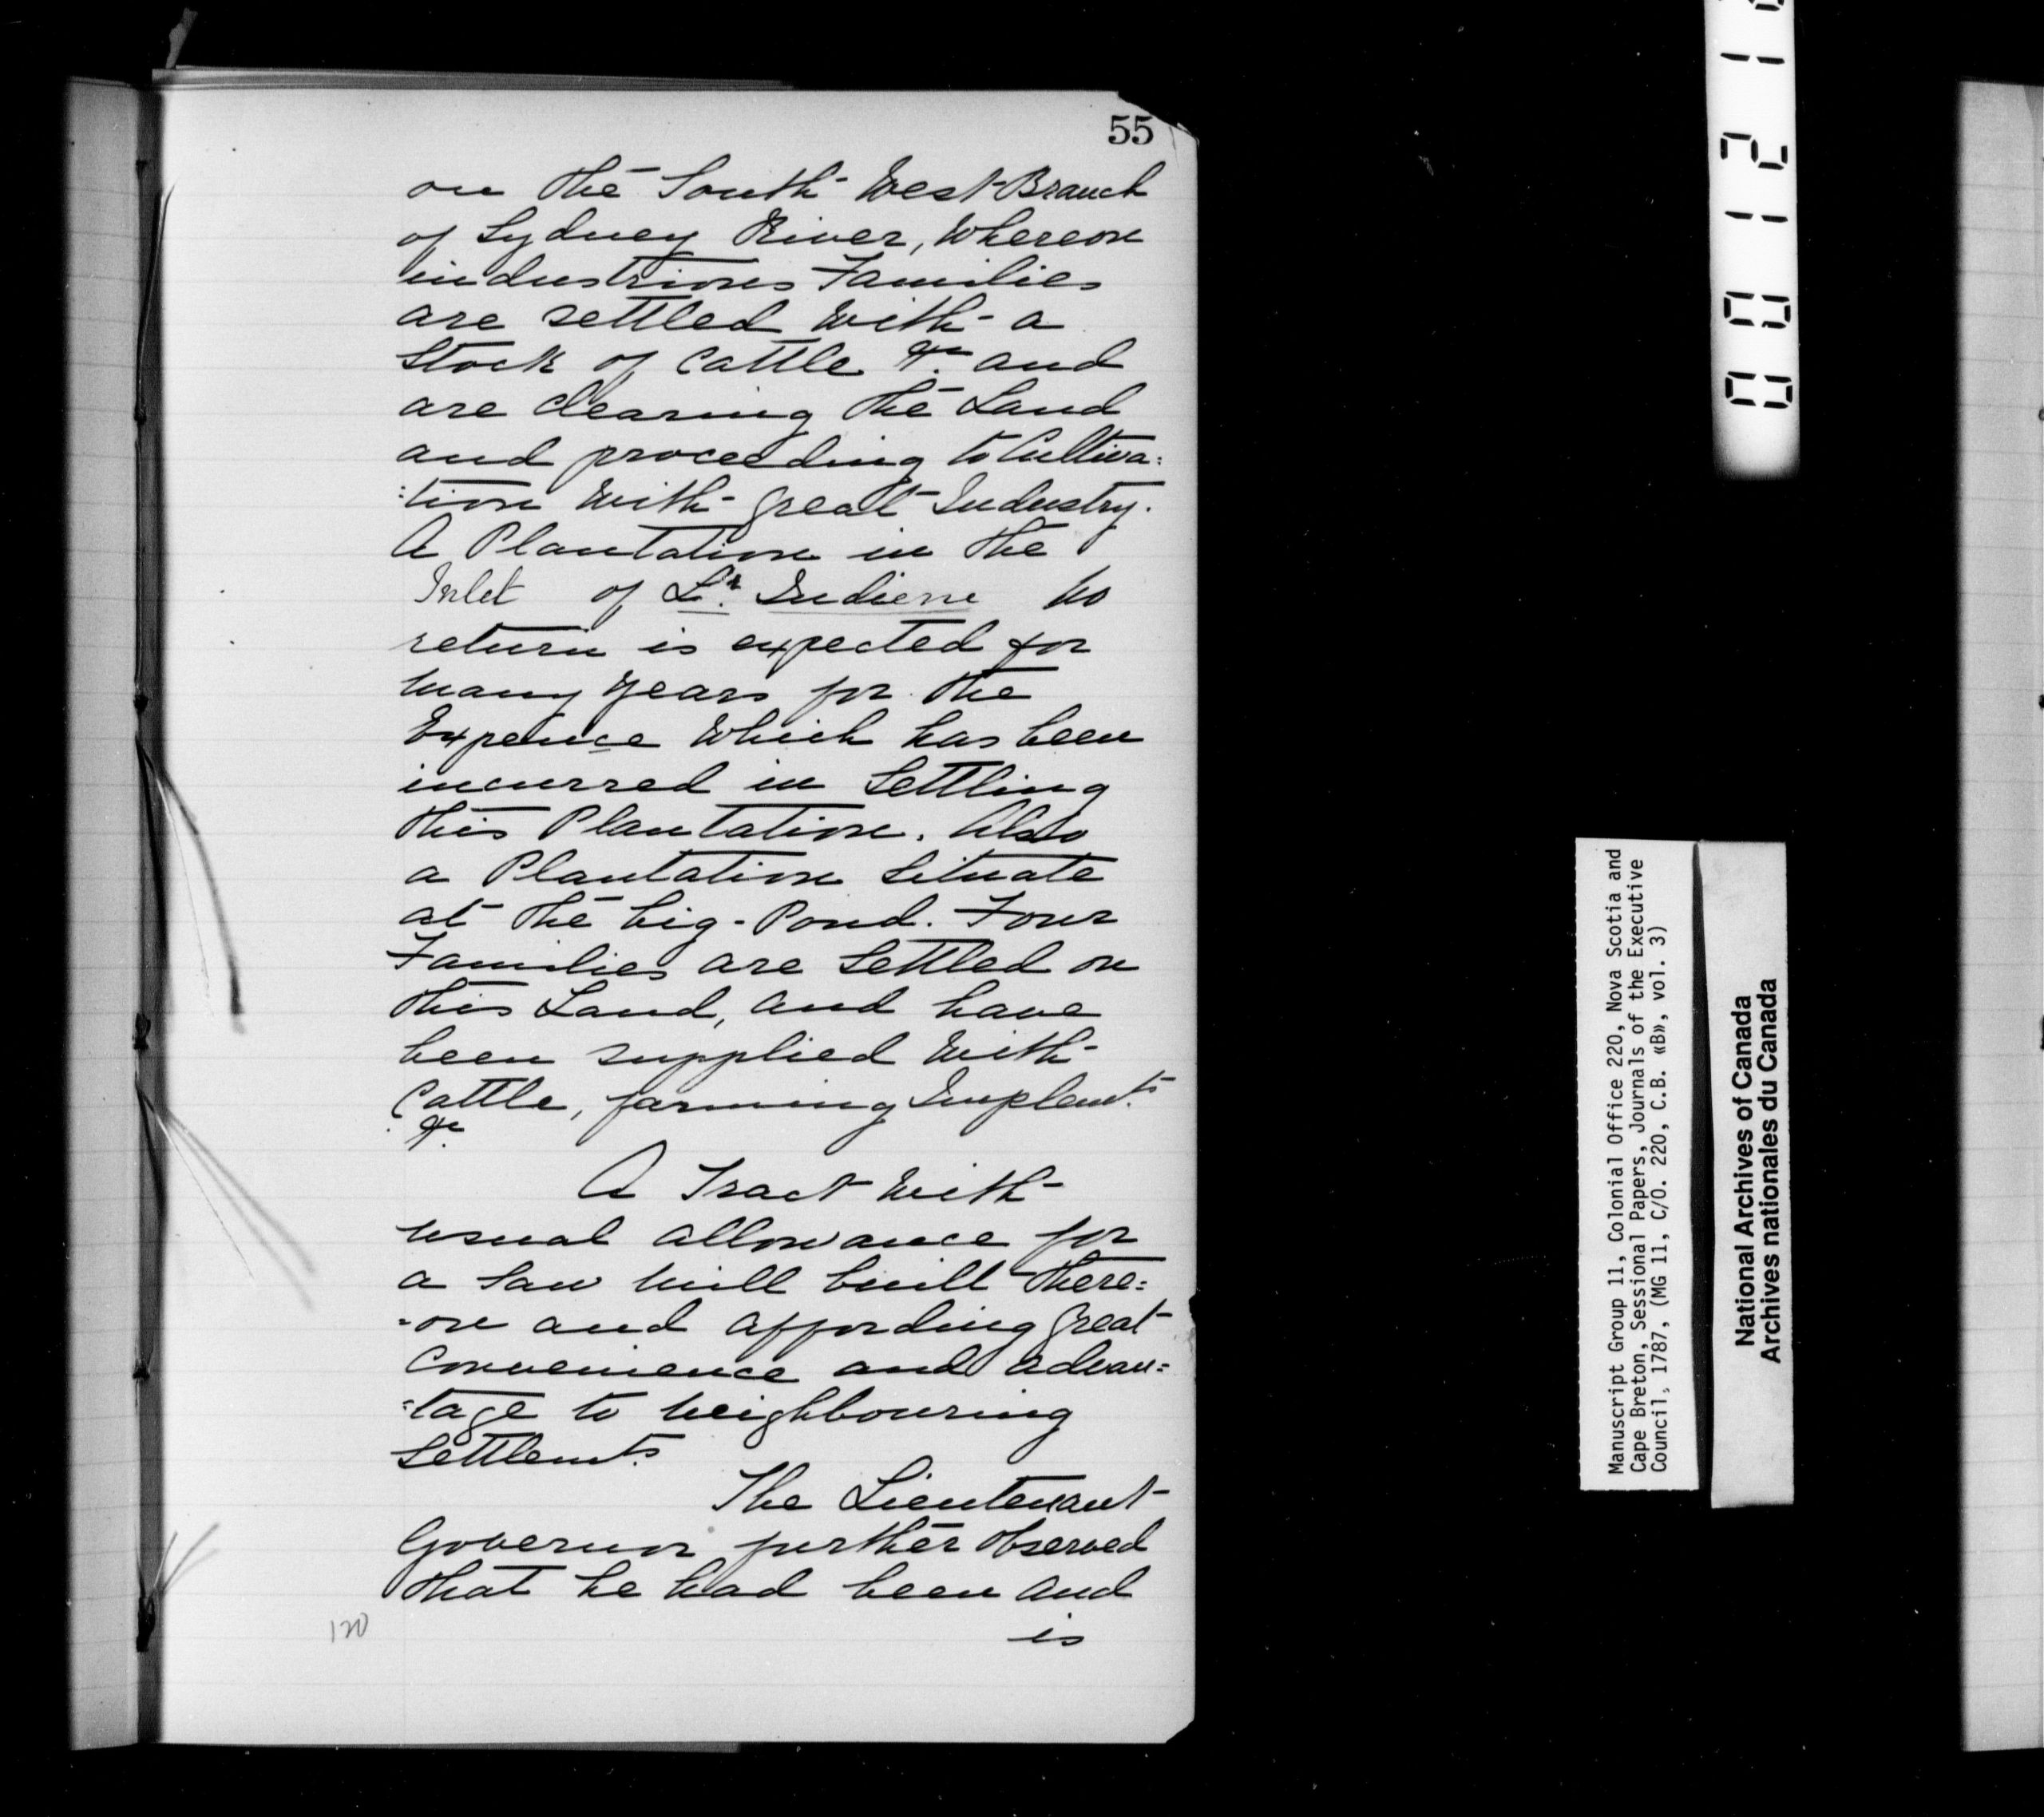 55
on the South West Branch
of Sydney River, Whereon
industrious Families
are settled with a
Stock of Cattle &c. and
are clearing the Land
and proceeding to Cultiva=
=tion with great Industry.
A Plantation in the
Inlet of Lr. Indienne No
return is expected for
many years for the
Expence Which has been
incurred in Settling
this Plantation. Also
a Plantation Situate
at the big-Pond. Four
Families are Settled on
this Land, and have
been supplied with
Cattle, farming Implemts.
&c.
A Tract with
usual allowance for
a Saw Mill built there=
=on and affording great
Convenience and advan=
=tage to neighbouring
Settlemts.
The Lieutenant
Governor further Observed
that he had been and
is
120
001212
Manuscript Group 11, Colonial Office 220, Nova Scotia and
Cape Breton, Sessional Papers, Journals of the Executive
Council, 1787, (MG 11, C/O. 220, C.B. «B», vol. 3)
National Archives of Canada
Archives nationales du Canada